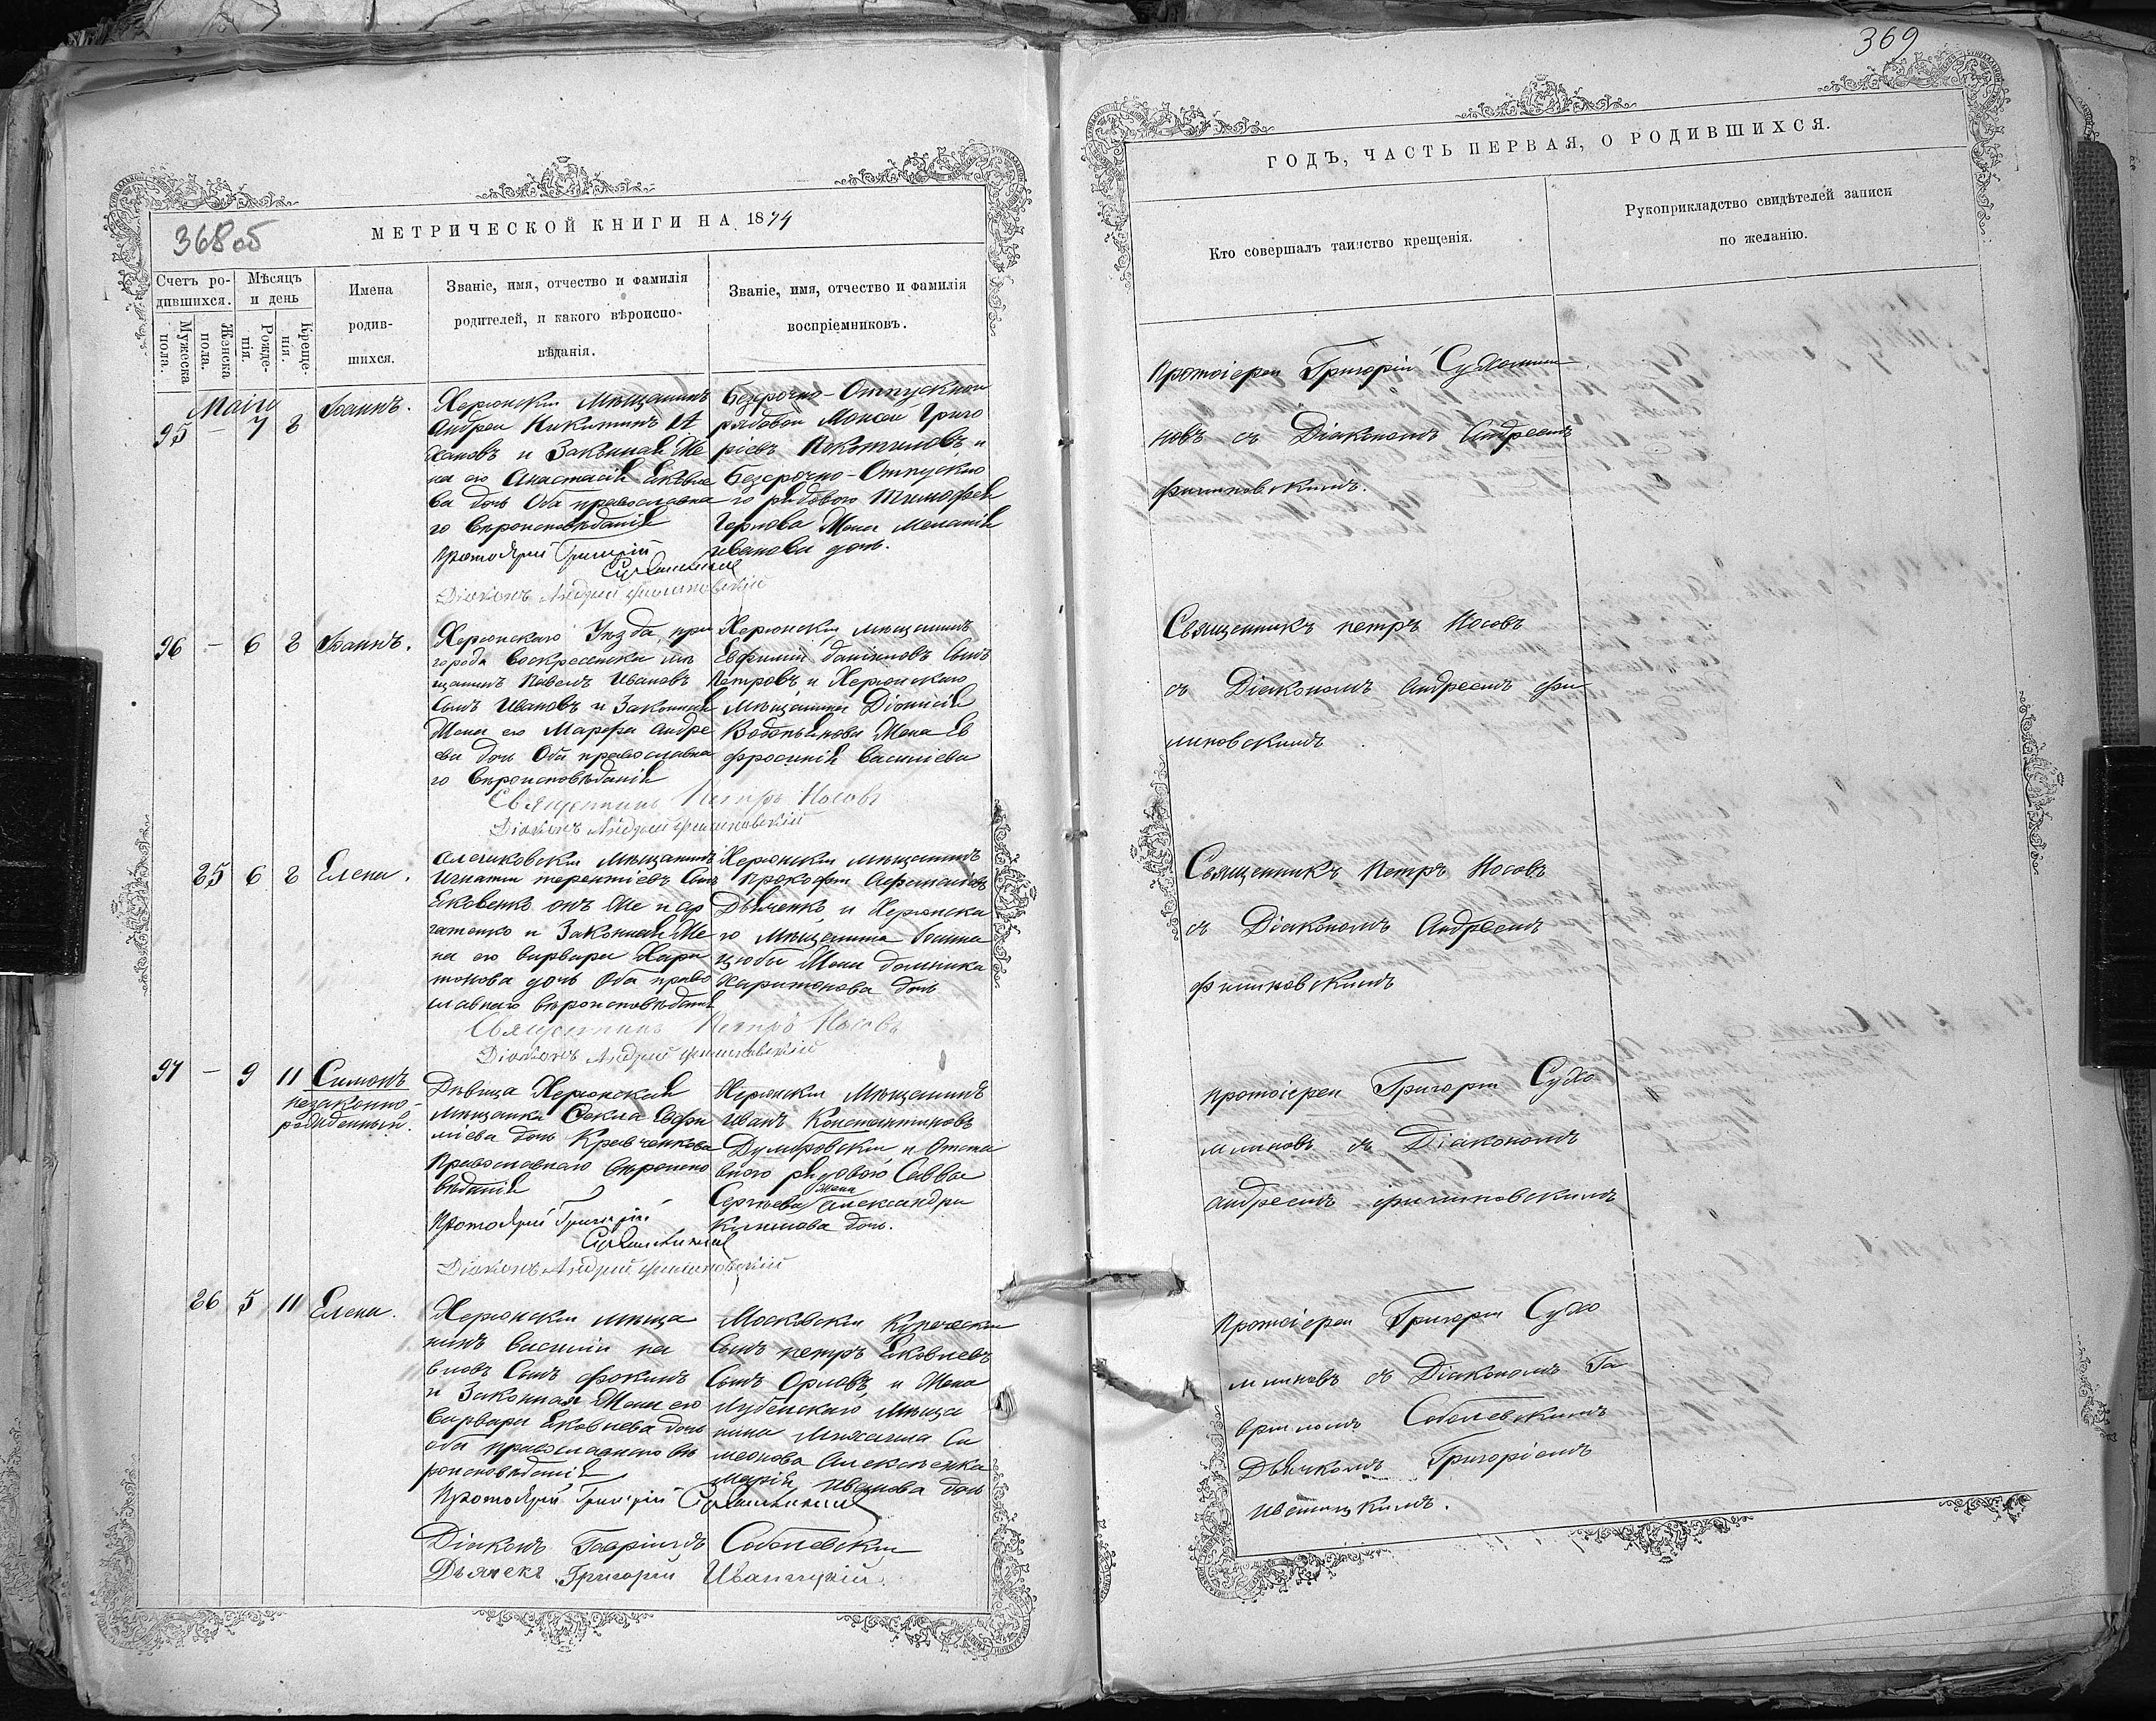 369
МЕТРИЧЕСКОЙ КНИГИ НА 1874
368об
Счетъ родившихся.
Мѣсяцъ и день
Мужеска пола.
Женска пола.
Рожденія.
Крещенія.
Имена
родив-
шихся.
Званіе, имя, отчество и фамилія
родителей, и какого вѣроиспо-
вѣданія.
Званіе, имя, отчество и фамилія
воспріемниковъ.
Маія
95 – 7 8 Іоаннъ.
Херсонскій Мѣщанинъ
Андрей Никитинъ
и Законная Же
на его Анастасія Яковле
ва дочь Оба православна
го Вѣроисповѣданія
Протоіерей Григорій
Сухомлиновъ
Діаконъ Андрей Филиповскій
Безсрочно-Отпускной
рядовой Моисей Григо
ріевъ и
Безсрочно-Отпускно
го рядового Тимофея
Чернова Жена Меланія
Иванова дочь.
96 – 6 8 Іоаннъ.
Херсонскаго Уѣзда при
города Воскресенска мѣ
щанинъ Павелъ Ивановъ
Сынъ Ивановъ и Законная
Жена его Марфа Андре
ева дочь Оба православна
го Вѣроисповѣданія
Священникъ Петръ Носовъ
Діаконъ Андрей Филиповскій
Херсонскій мѣщанинъ
Евфимій Даниловъ Сынъ
Петровъ и Херсонскаго
Мѣщанина Діонисія
Водопьянова Жена Ев
фросинія Василіева
25 6 8 Елена.
Алешковскій Мѣщанинъ
Игнатій Терентіевъ Сынъ
Яковенко онъ Же и
и Законная Же
на его Варвара Хари
тонова дочь Оба право
славнаго Вѣроисповѣданія
Священникъ Петръ Носовъ
Діаконъ Андрей Филиповскій
Херсонскій мѣщанинъ
Прокофій Афанасіевъ
Дяченко и Херсонска
го Мѣщанина Іоанна
Цюбы Жена Домника
Харитонова дочь
97 – 9 11 Симонъ
незаконно-
рожденный.
Дѣвица Херсонская
Мѣщанка Ѳекла Евфи
міева дочь Кравченкова
Православнаго Вѣроиспо
вѣданія
Протоіерей Григорій
Сухомлиновъ
Діаконъ Андрей Филиповскій
Херсонскій Мѣщанинъ
Иванъ Константиновъ
Думбровскій и Отста
вного рядового Саввы
Сергѣева жена Александра
дочь.
26 5 11 Елена.
Херсонскій мѣща
нинъ Василій Па
вловъ Сынъ Фокинъ
и Законная Жена его
Варвара Яковлева дочь
оба православнаго Вѣ
роисповѣданія
Протоіерей Григорій Сухомлиновъ
Діаконъ Гавріилъ Соболевскій
Дьячекъ Григорій Иваницкій.
Московскій Купеческій
Сынъ Петръ Яковлевъ
Сынъ Орловъ и Жена
Лубенскаго Мѣща
нина Михаила Си
меонова Алексѣенка
Марія Иванова дочь
ГОДЪ, ЧАСТЬ ПЕРВАЯ, О РОДИВШИХСЯ.
Кто совершалъ таинство крещенія.
Рукоприкладство свидѣтелей записи
по желанію.
Протоіерей Григорій Сухомли
новъ съ Діакономъ Андреемъ
Филиповскимъ.
Священникъ Петръ Носовъ
съ Діакономъ Андреемъ Фи
липовскимъ
Священникъ Петръ Носовъ
съ Діакономъ Андреемъ
Филиповскимъ
Протоіерей Григорій Сухо
млиновъ съ Діакономъ
Андреемъ Филиповскимъ
Протоіерей Григорій Сухо
млиновъ съ Діакономъ Га
вріиломъ Соболевскимъ
Дьячкомъ Григоріемъ
Иваницкимъ.